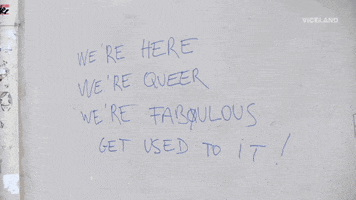 VICELAND
WE'RE HERE
WE'RE QUEER
WE'RE FABOULOUS
GET USED TO IT!